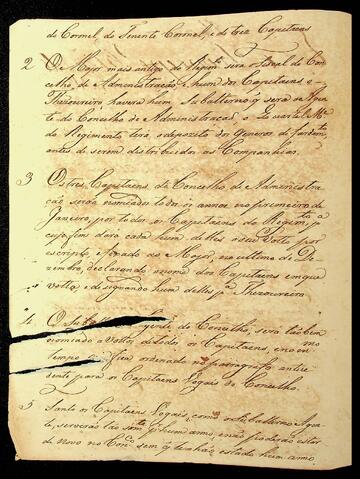 do Coronel, do Tenente Coronel, e de tres Capitaens
2 O Major mais antigo do Regimto será Fiscal do Con-
celho de Administração e hum dos Capitaens o
Thezoureiro haverá hum Subalterno q̃ será o Agen-
te do Concelho de Administracaõ, o Quartel Me
do Regimento terá o depozito dos Generos de fardamto
antes de serem distribuidos as Companhias.
3 Os tres Capitaens do Concelho de Administra-
ção serão nomiados todos os annos no primeiro de
Janeiro, por todos os Capitaens do Regimto, pa
cujo fim dara cada hum delles o seu Voto por
escripto, fexado ao Major, no ultimo de De-
zembro, declarando o nome dos Capitaens em que
vota, e designando hum delles pa Thezoureiro
4 O Subalterno Agente do Concelho, será tão bem
nomiado a Votos de todos os Capitaens, e no mmo
tempo fica ordenado no paragrafo antece-
dente para os Capitaens Vogais do Concelho.
5 Tanto os Capitaens Vogais, como o Subalterno Agen-
te, servirão tão somte hum anno, e não poderão estar
de novo no Conco sem q̃ tenhão estado hum anno